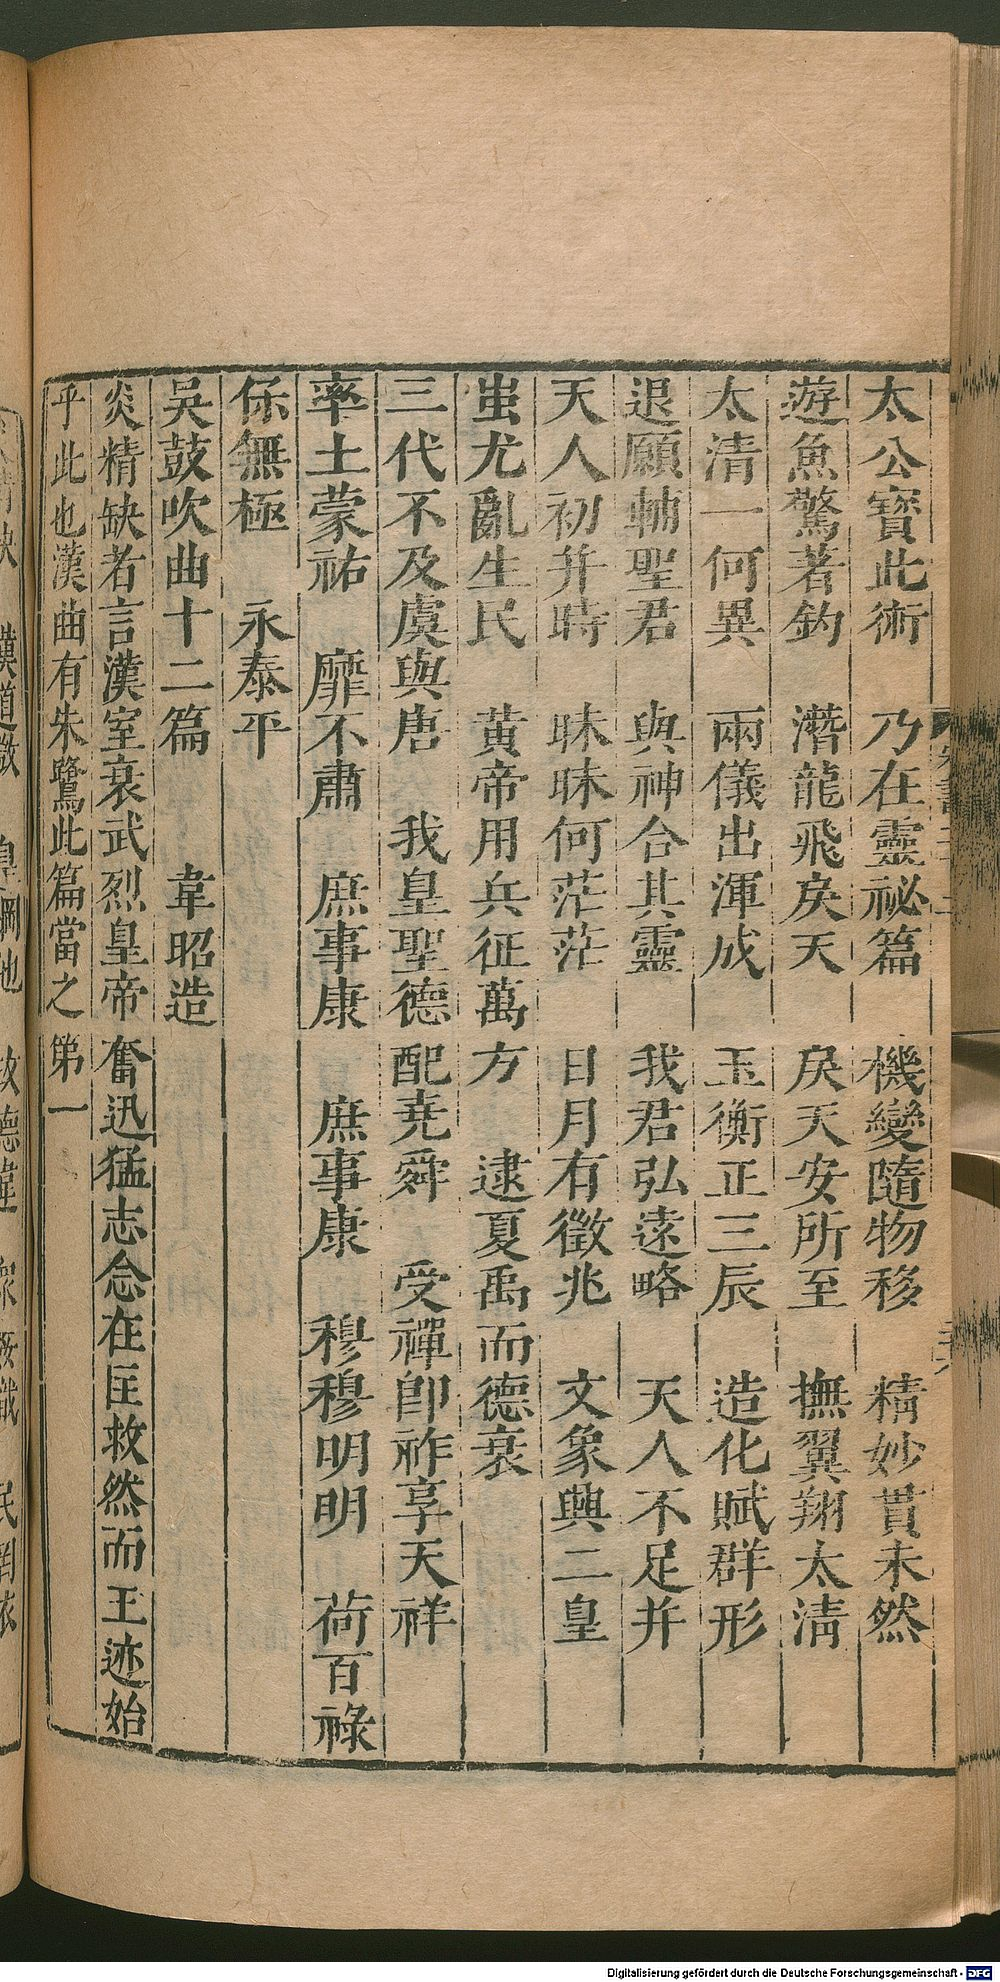 太公寶此術　乃在靈祕篇　機變隨物移　精妙貫未然
遊魚驚著鈎　潛龍飛戾天　戾天安所至　撫翼翔太清
太清一何異　兩儀出渾成　玉衡正三辰　造化賦群形
退願輔聖君　與神合其靈　我君弘遠略　天人不足并
天人初并時　昧昧何茫茫　日月有徵兆　文象興二皇
蚩尤亂生民　黃帝用兵征萬方　逮夏禹而德衰
三代不及虞與唐　我皇聖德配堯舜　受禪卽祚享天祥
率土蒙祐　靡不肅　庶事康　庶事康　穆穆明明　荷百祿
保無極　永泰平
吳鼓吹曲十二篇　韋昭造
炎精缺者言漢室衰武烈皇帝奮迅猛志念在匡救然而王迹始
乎此也漢曲有朱鷺此篇當之第一
Digitalisierung gefördert durch die Deutsche Forschungsgemeinschaft - DFG